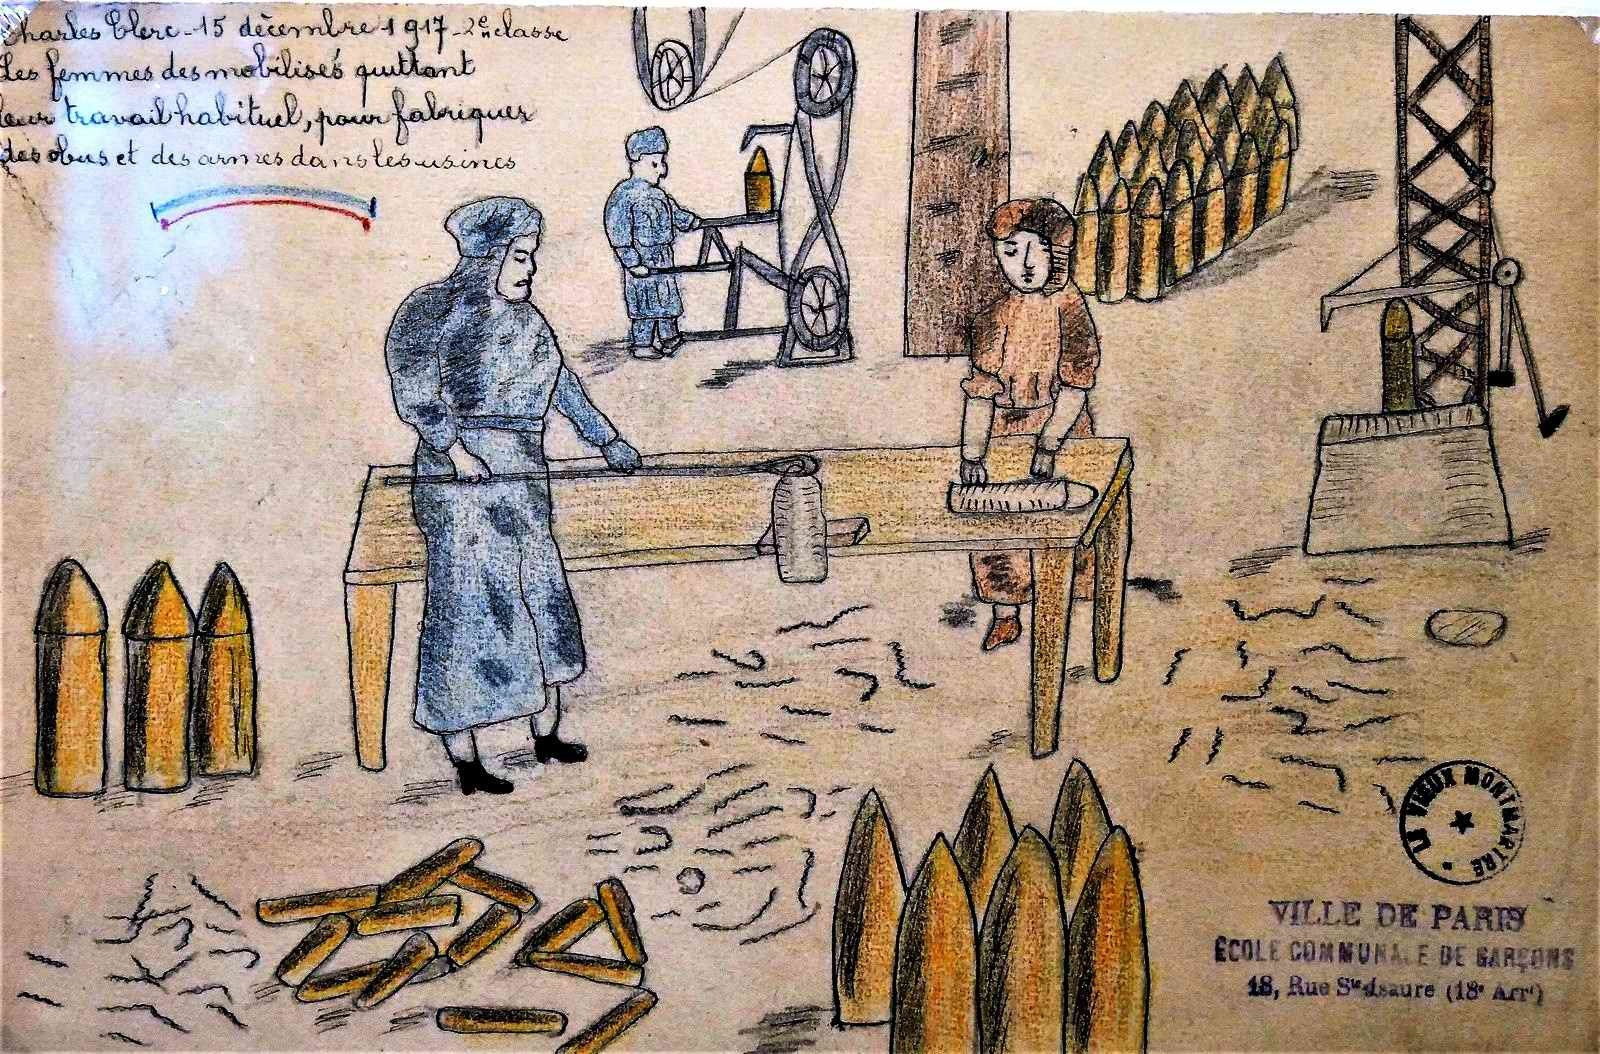 Charles Clerc - 15 décembre 1917 - 2e classe
Les femmes des mobilisés quittant
leur travail habituel, pour fabriquer
des obus et des armes dans les usines
LE VIEUX MONTMARTRE
VILLE DE PARIS
ÉCOLE COMMUNALE DE GARÇONS
18, Rue Ste Isaure (18e Arrt)